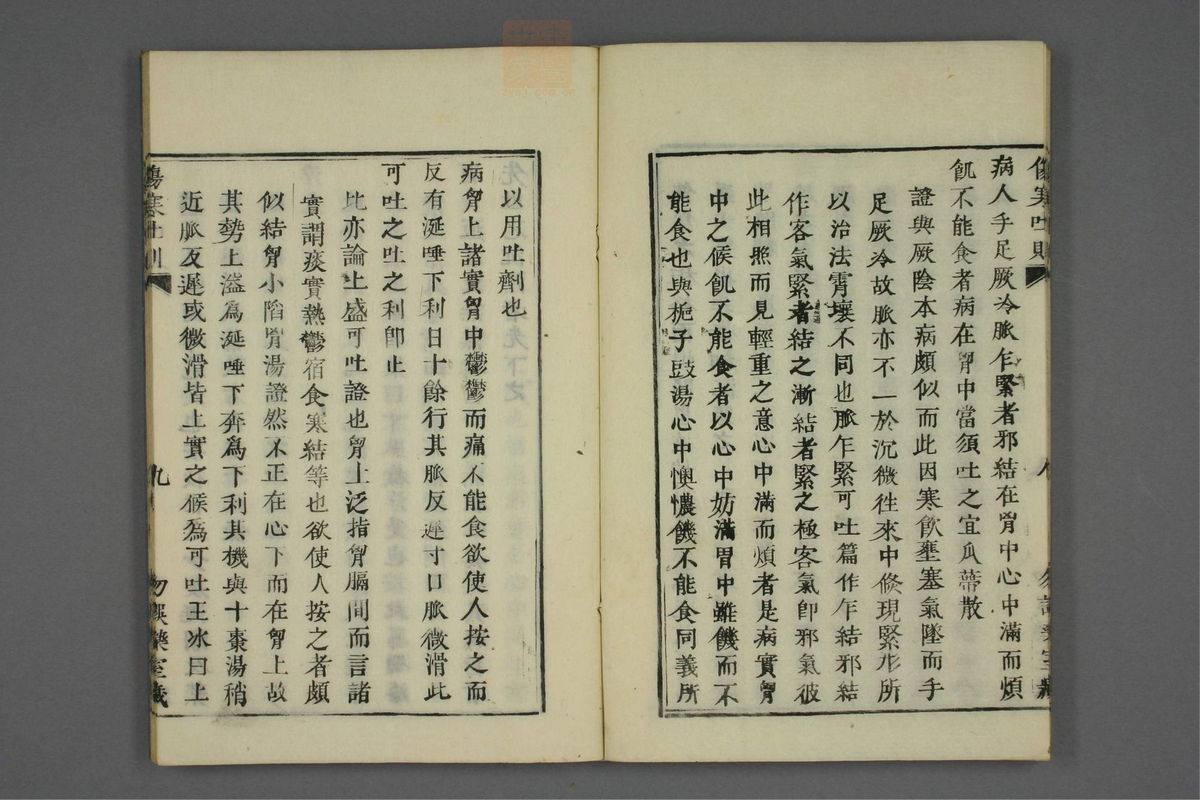 傷寒吐則
八
病人手足厥冷脈乍緊者邪結在胷中心中滿而煩
飢不能食者病在胷中當須吐之宜瓜蒂散
證與厥陰本病頗似而此因寒飲壅塞氣墜而手
足厥冷故脈亦不一於沉微徃來中倐現緊形所
以治法霄壤不同也脈乍緊可吐篇作乍結邪結
作客氣緊者結之漸結者緊之極客氣卽邪氣彼
此相照而見輕重之意心中滿而煩者是病實胷
中之候飢不能食者以心中妨滿胃中雖饑而不
能食也與梔子豉湯心中懊憹饑不能食同義所
先以用吐劑也
病胷上諸實胷中鬱鬱而痛不能食欲使人按之而
反有涎唾下利日十餘行其脈反遲寸口脈微滑此
可吐之吐之利卽止
此亦論上盛可吐證也胷上泛指胷膈間而言諸
實謂痰實熱鬱宿食寒結等也欲使人按之者頗
似結胷小陷胷湯證然不正在心下而在胷上故
其勢上溢爲涎唾下奔爲下利其機與十棗湯稍
近脈反遲或微滑皆上實之候爲可吐王冰曰上
傷寒吐則
九
勿誤藥室藏